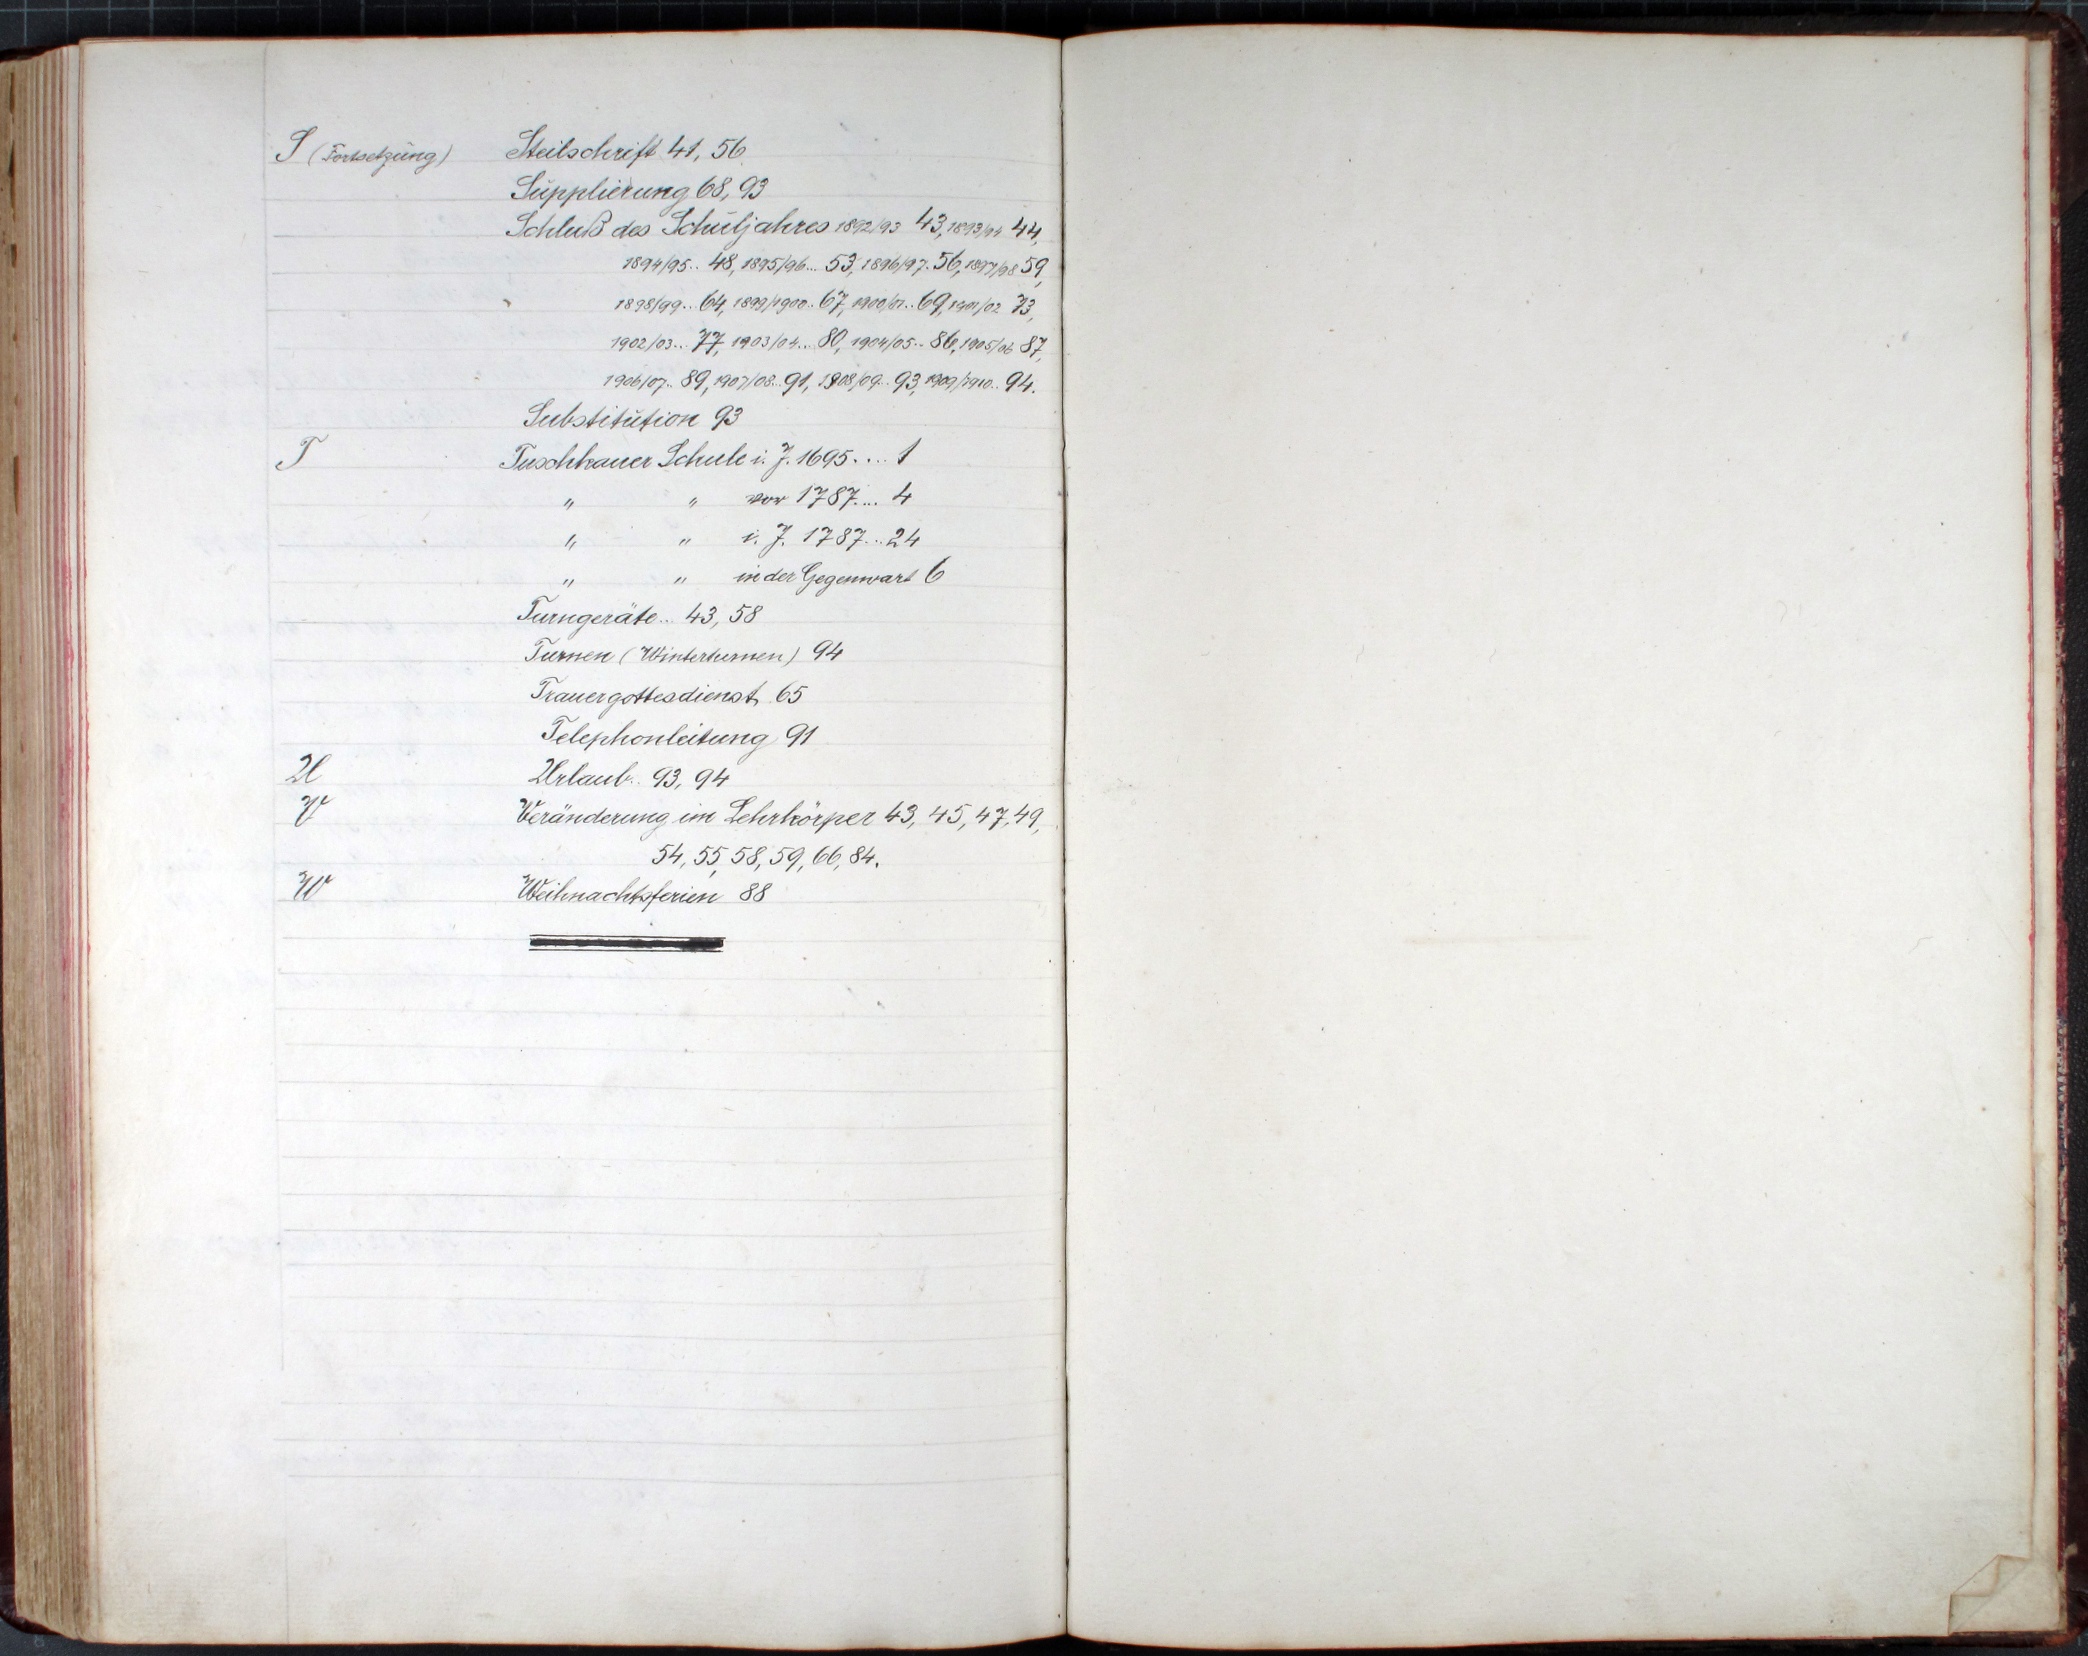 S (Fortsetzung) Steilschrift 41, 56
Supplierung 68, 93
Schluß des Schuljahres 1892/93 43, 1893/94 44,
1894/95.. 48, 1895/96... 53, 1896/97. 56, 1897/98 59,
1898/99.. 64, 1899/1900.. 67, 1900/01.. 69, 1901/02 73,
1902/03... 77, 1903/04... 80, 1904/05.. 86, 1905/06 87,
1906/07.. 89, 1907/08.. 91, 1908/09.. 93, 1909/1910.. 94.
Substitution 93
T Tuschkauer Schule i. J. 1695.... 1
" " vor 1787... 4
" " i. J. 1787... 24
" " in der Gegenwart 6
Turngeräte.. 43, 58
Turnen (Winterturnen) 94
Trauergottesdienst 65
Telephonleitung 91
U Urlaub.. 93, 94
V Veränderung im Lehrkörper 43, 45, 47, 49,
54, 55, 58, 59, 66, 84.
W Weihnachtsferien 88